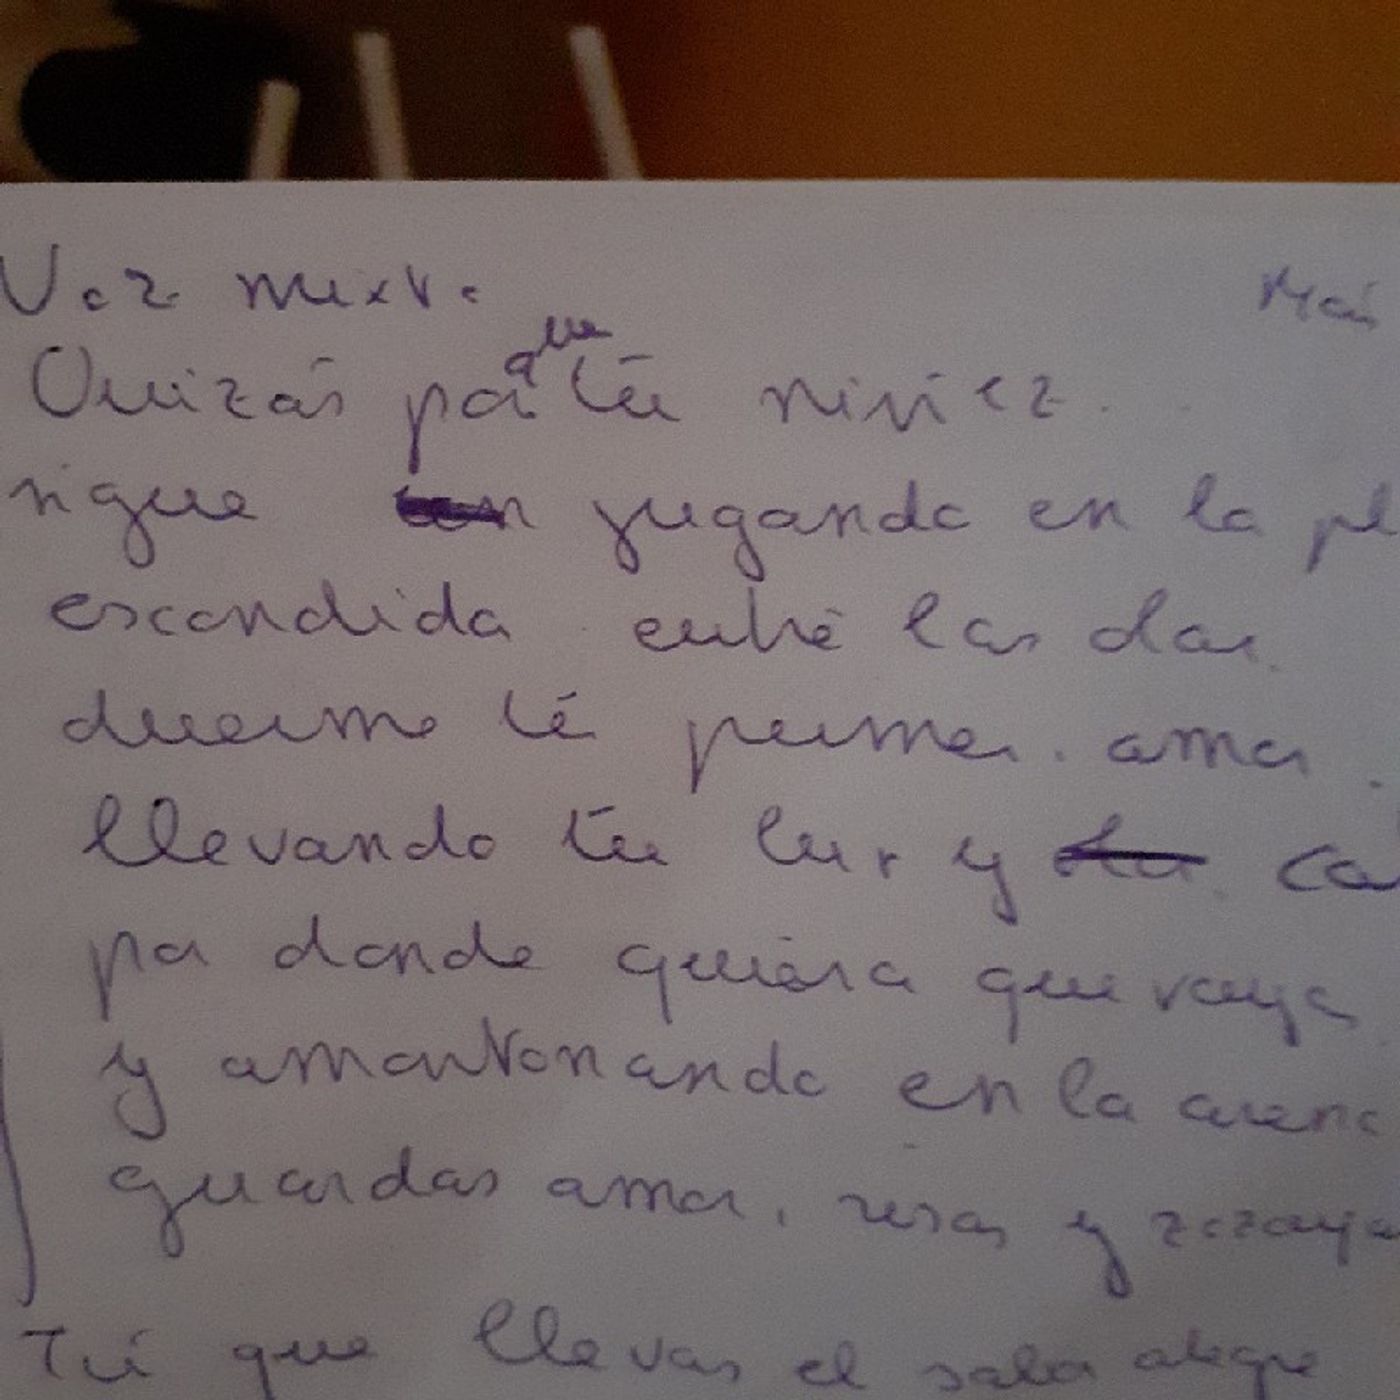 Voz mixta Más
Quizás por que tú niñez
sigue jugando en la pl
escondida entre las olas
duerme tú primer amor
llevando tu luz y co
por donde quiera que vaya
y amontonando en la arena
guardas amor, risas y
Tú que llevas el sabor alegre